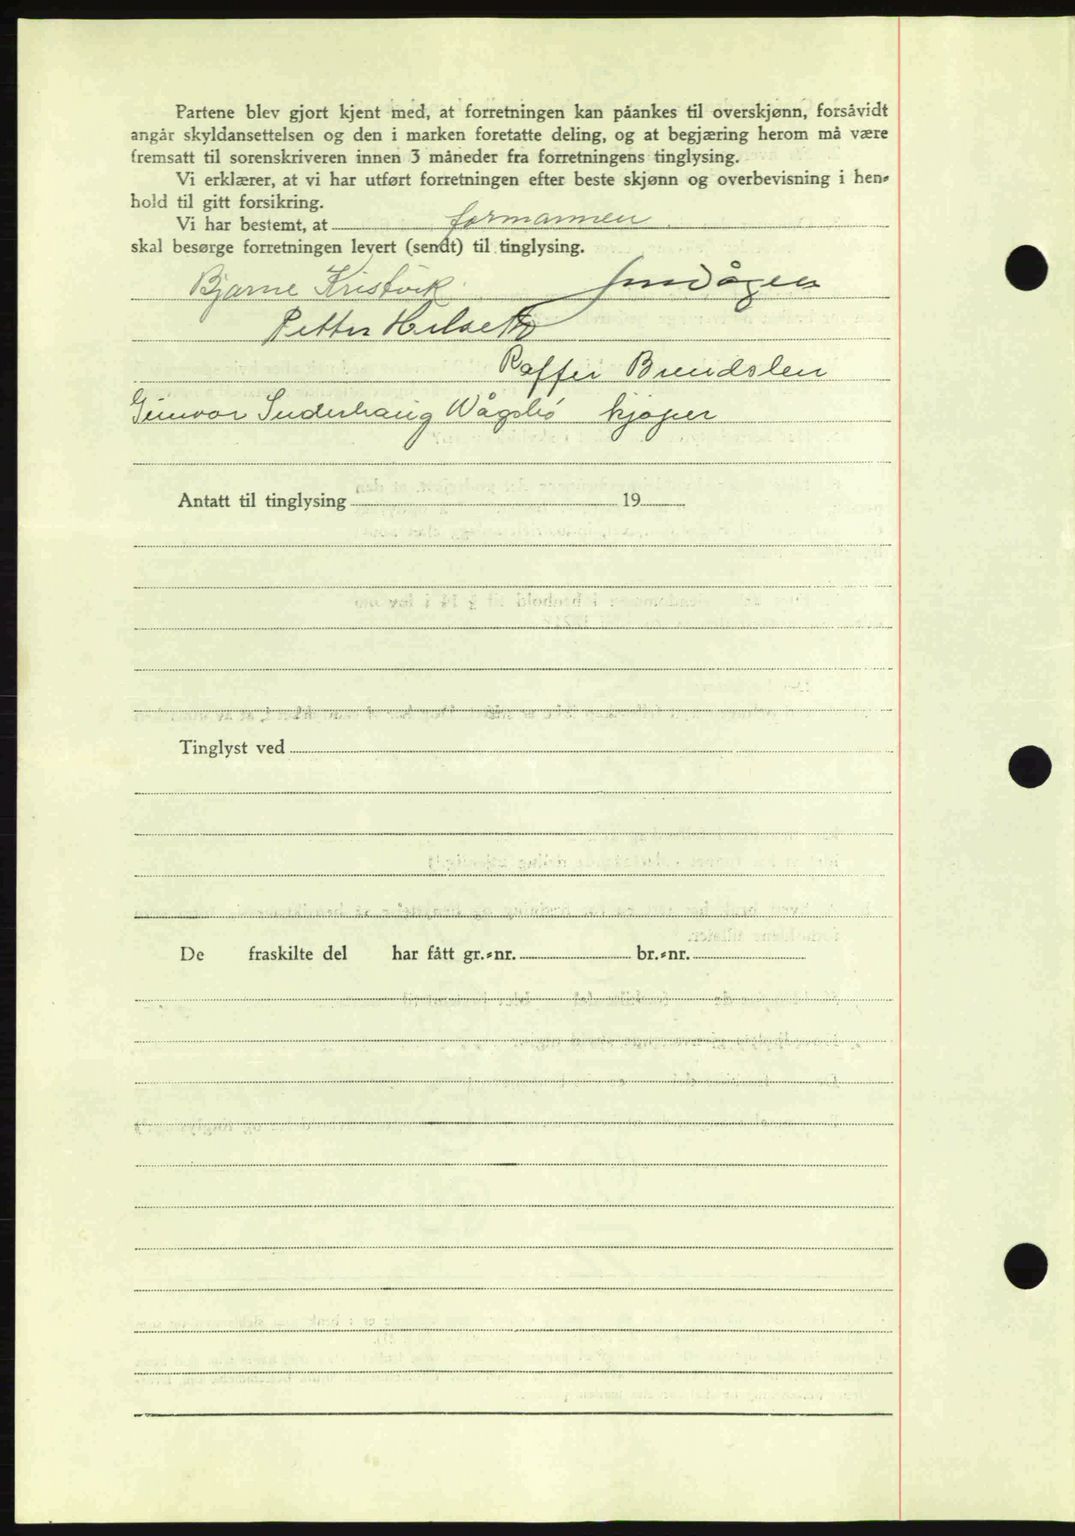 Partene blev gjort kjent med, at forretningen kan påankes til overskjønn, forsåvidt
angår skyldansettelsen og den i marken foretatte deling, og at begjæring herom må være
fremsatt til sorenskriveren innen 3 måneder fra forretningens tinglysing.
Vi erklærer, at vi har utført forretningen efter beste skjønn og overbevisning i hen-
hold til gitt forsikring.
Vi har bestemt, at formannen
skal besørge forretningen levert (sendt) til tinglysing.
Bjarne Kristvik
Petter Helseth
Gunvor kjøper
Antatt til tinglysing 19
Tinglyst ved
De fraskilte del har fått gr.-nr. br.-nr.